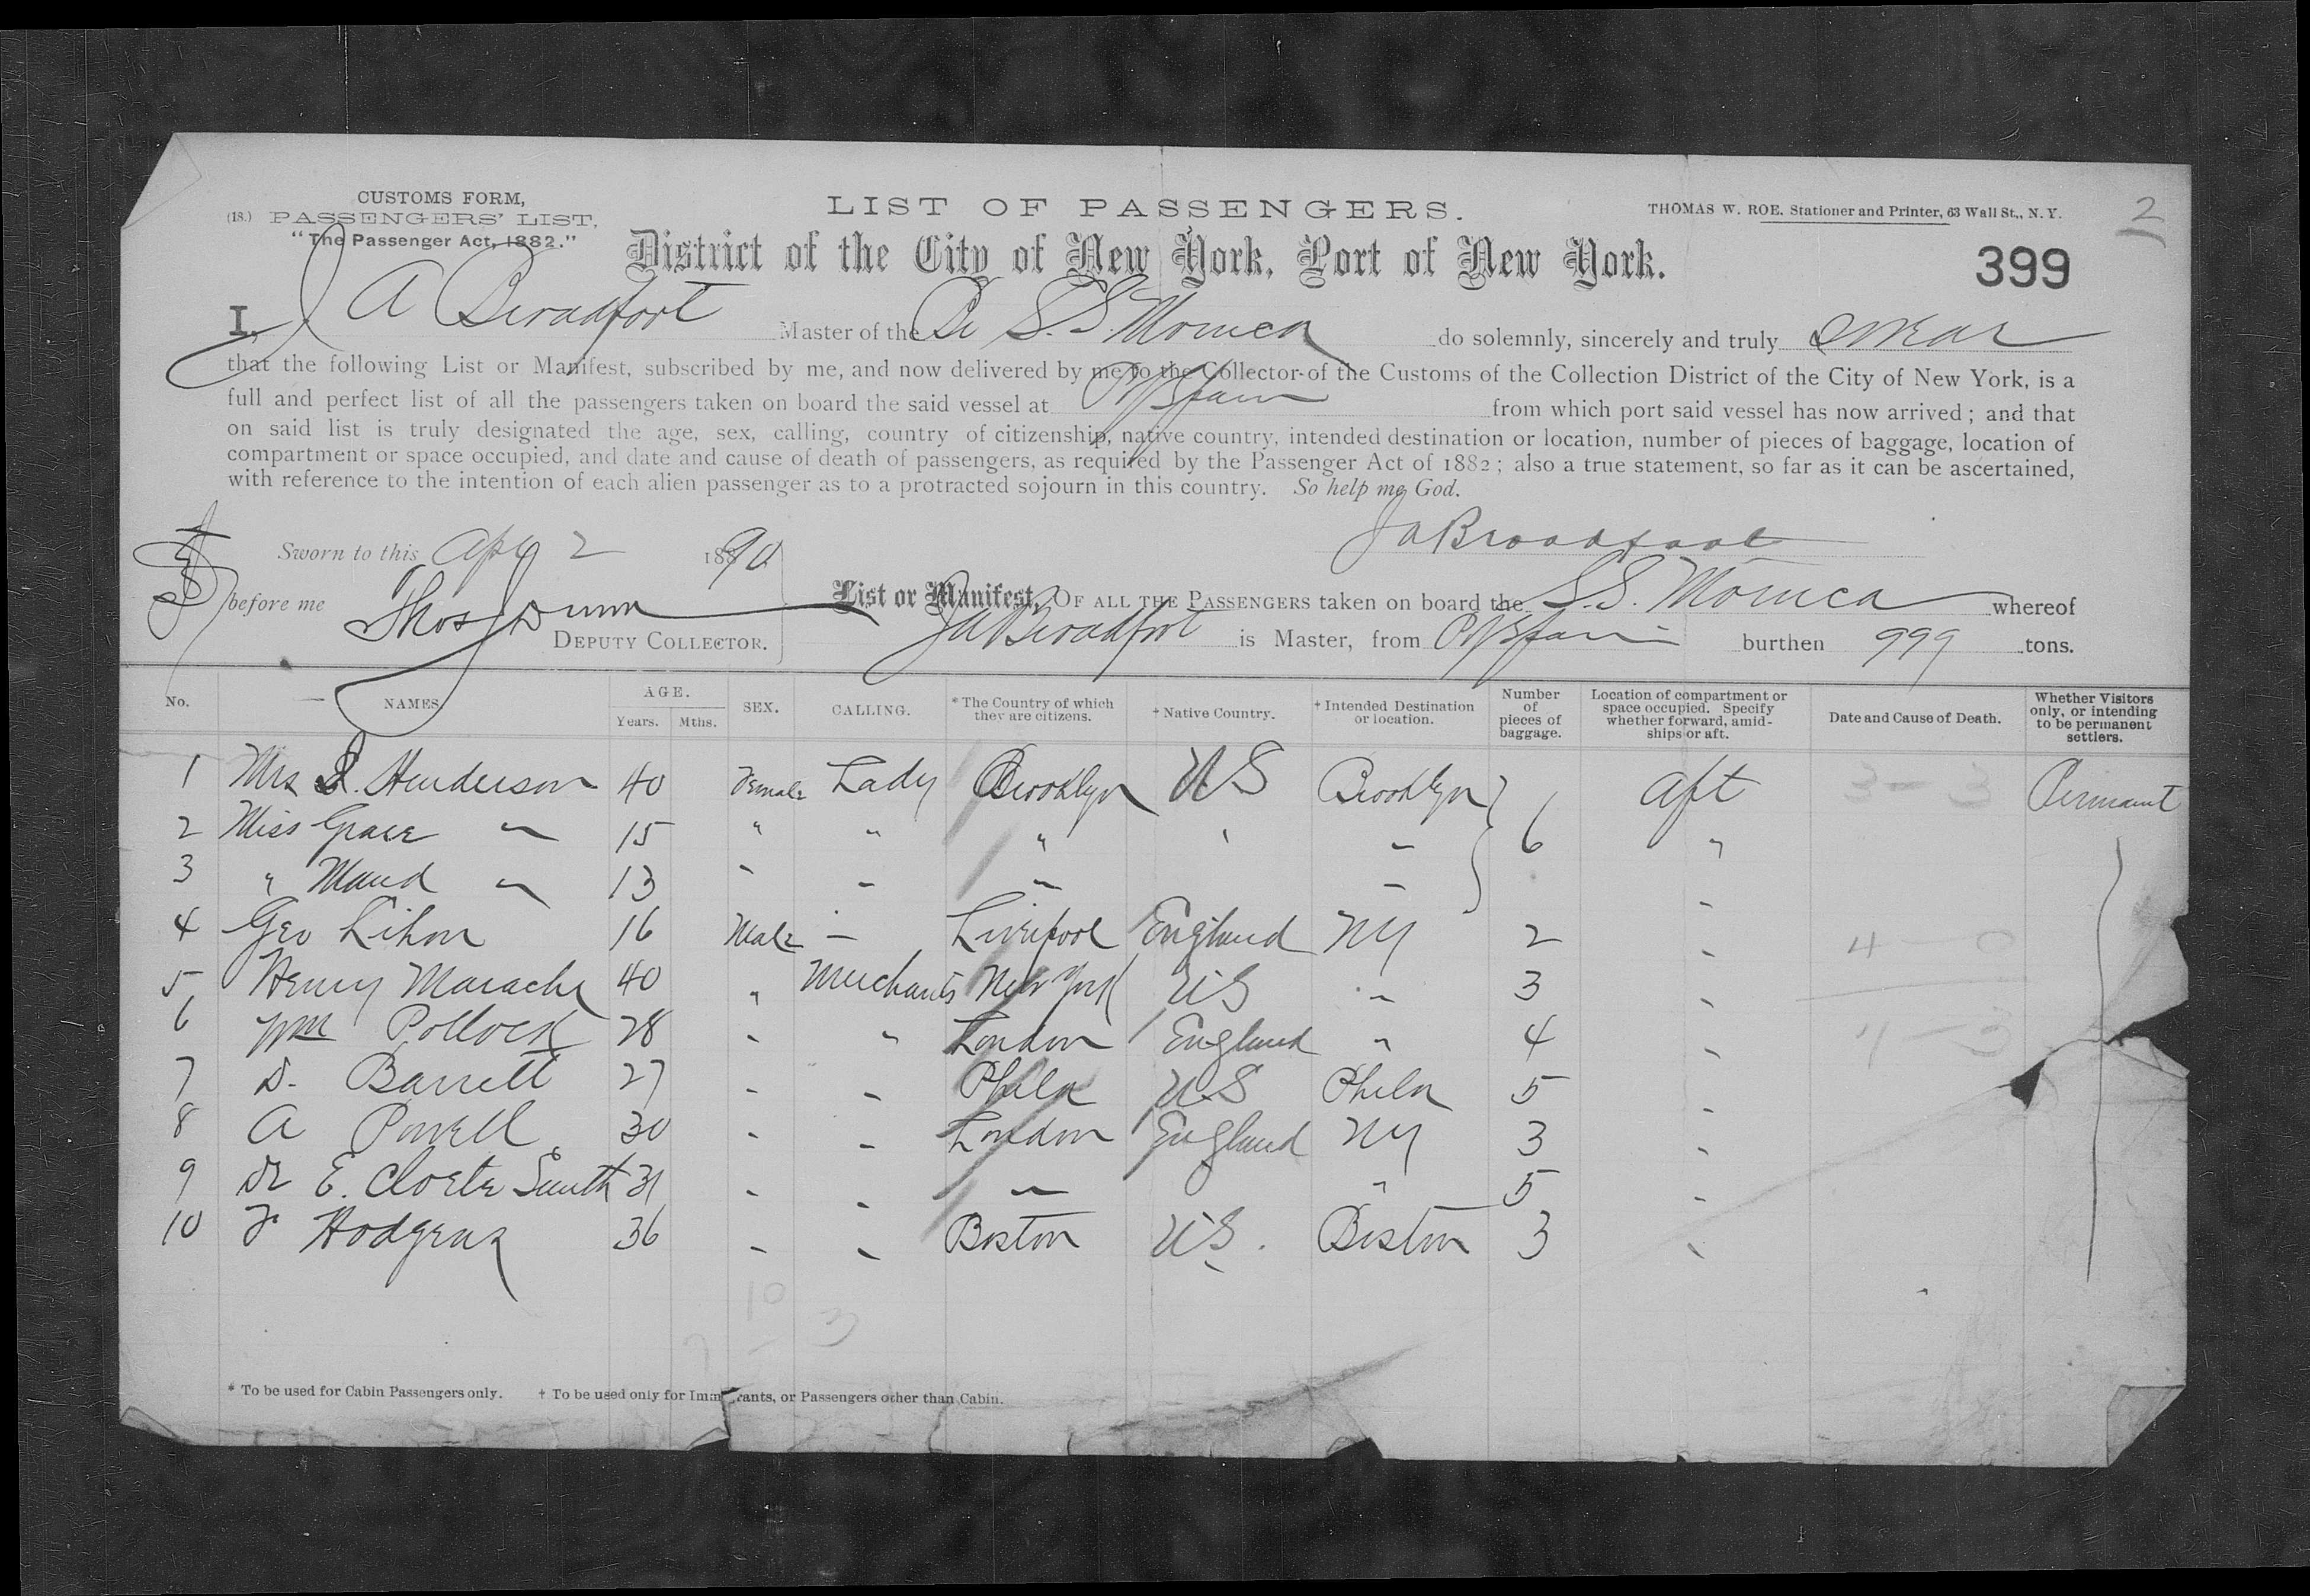 CUSTOMS FORM,
(18.) PASSENGERS' LIST,
"The Passenger Act, 1882."
LIST OF PASSENGERS.
THOMAS W. ROE. Stationer and Printer, 63 Wall St., N. Y.
2
District of the City of New York, Port of New York.
399
I, J A Broadfoot Master of the Br S.S. Monica do solemnly, sincerely and truly swear
that the following List or Manifest, subscribed by me, and now delivered by me to the Collector of the Customs of the Collection District of the City of New York, is a
full and perfect list of all the passengers taken on board the said vessel at from which port said vessel has now arrived; and that
on said list is truly designated the age, sex, calling, country of citizenship, native country, intended destination or location, number of pieces of baggage, location of
compartment or space occupied, and date and cause of death of passengers, as required by the Passenger Act of 1882; also a true statement, so far as it can be ascertained,
with reference to the intention of each alien passenger as to a protracted sojourn in this country. So help me God.
Sworn to this Apr 2 1890
JA Broadfoot
before me Thos Dunn
DEPUTY COLLECTOR.
List or Manifest, OF ALL THE PASSENGERS taken on board the S.S. Monica whereof
JA Broadfoot is Master, from burthen 999 tons.
No. NAMES AGE. Years. Mths. SEX. CALLING. * The Country of which they are citizens. † Native Country. † Intended Destination or location. Number of pieces of baggage. Location of compartment or space occupied. Specify whether forward, amidships or aft. Date and Cause of Death. Whether Visitors only, or intending to be permanent settlers.
1 Mrs Henderson 40 Female Lady Brooklyn US Brooklyn aft 3 - 3 Permant
2 Miss Grace " 15 " " " " " 6 "
3 " Maud " 13 " " " " "
4 Geo 16 Male - Liverpool England NY 2 " 4 - 0
5 Henry Marache 40 " Merchants New York US " 3 "
6 Wm Pollock 28 " " London England " 4 " 7 - 3
7 D. Barrett 27 " " Phila US Phila 5 "
8 A Powell 30 " " London England NY 3 "
9 Dr E. Cloete Smith 31 " " " " 5 "
10 F Hodgens 36 " " Boston US. Boston 3 "
10
3
* To be used for Cabin Passengers only. † To be used only for Immigrants, or Passengers other than Cabin.